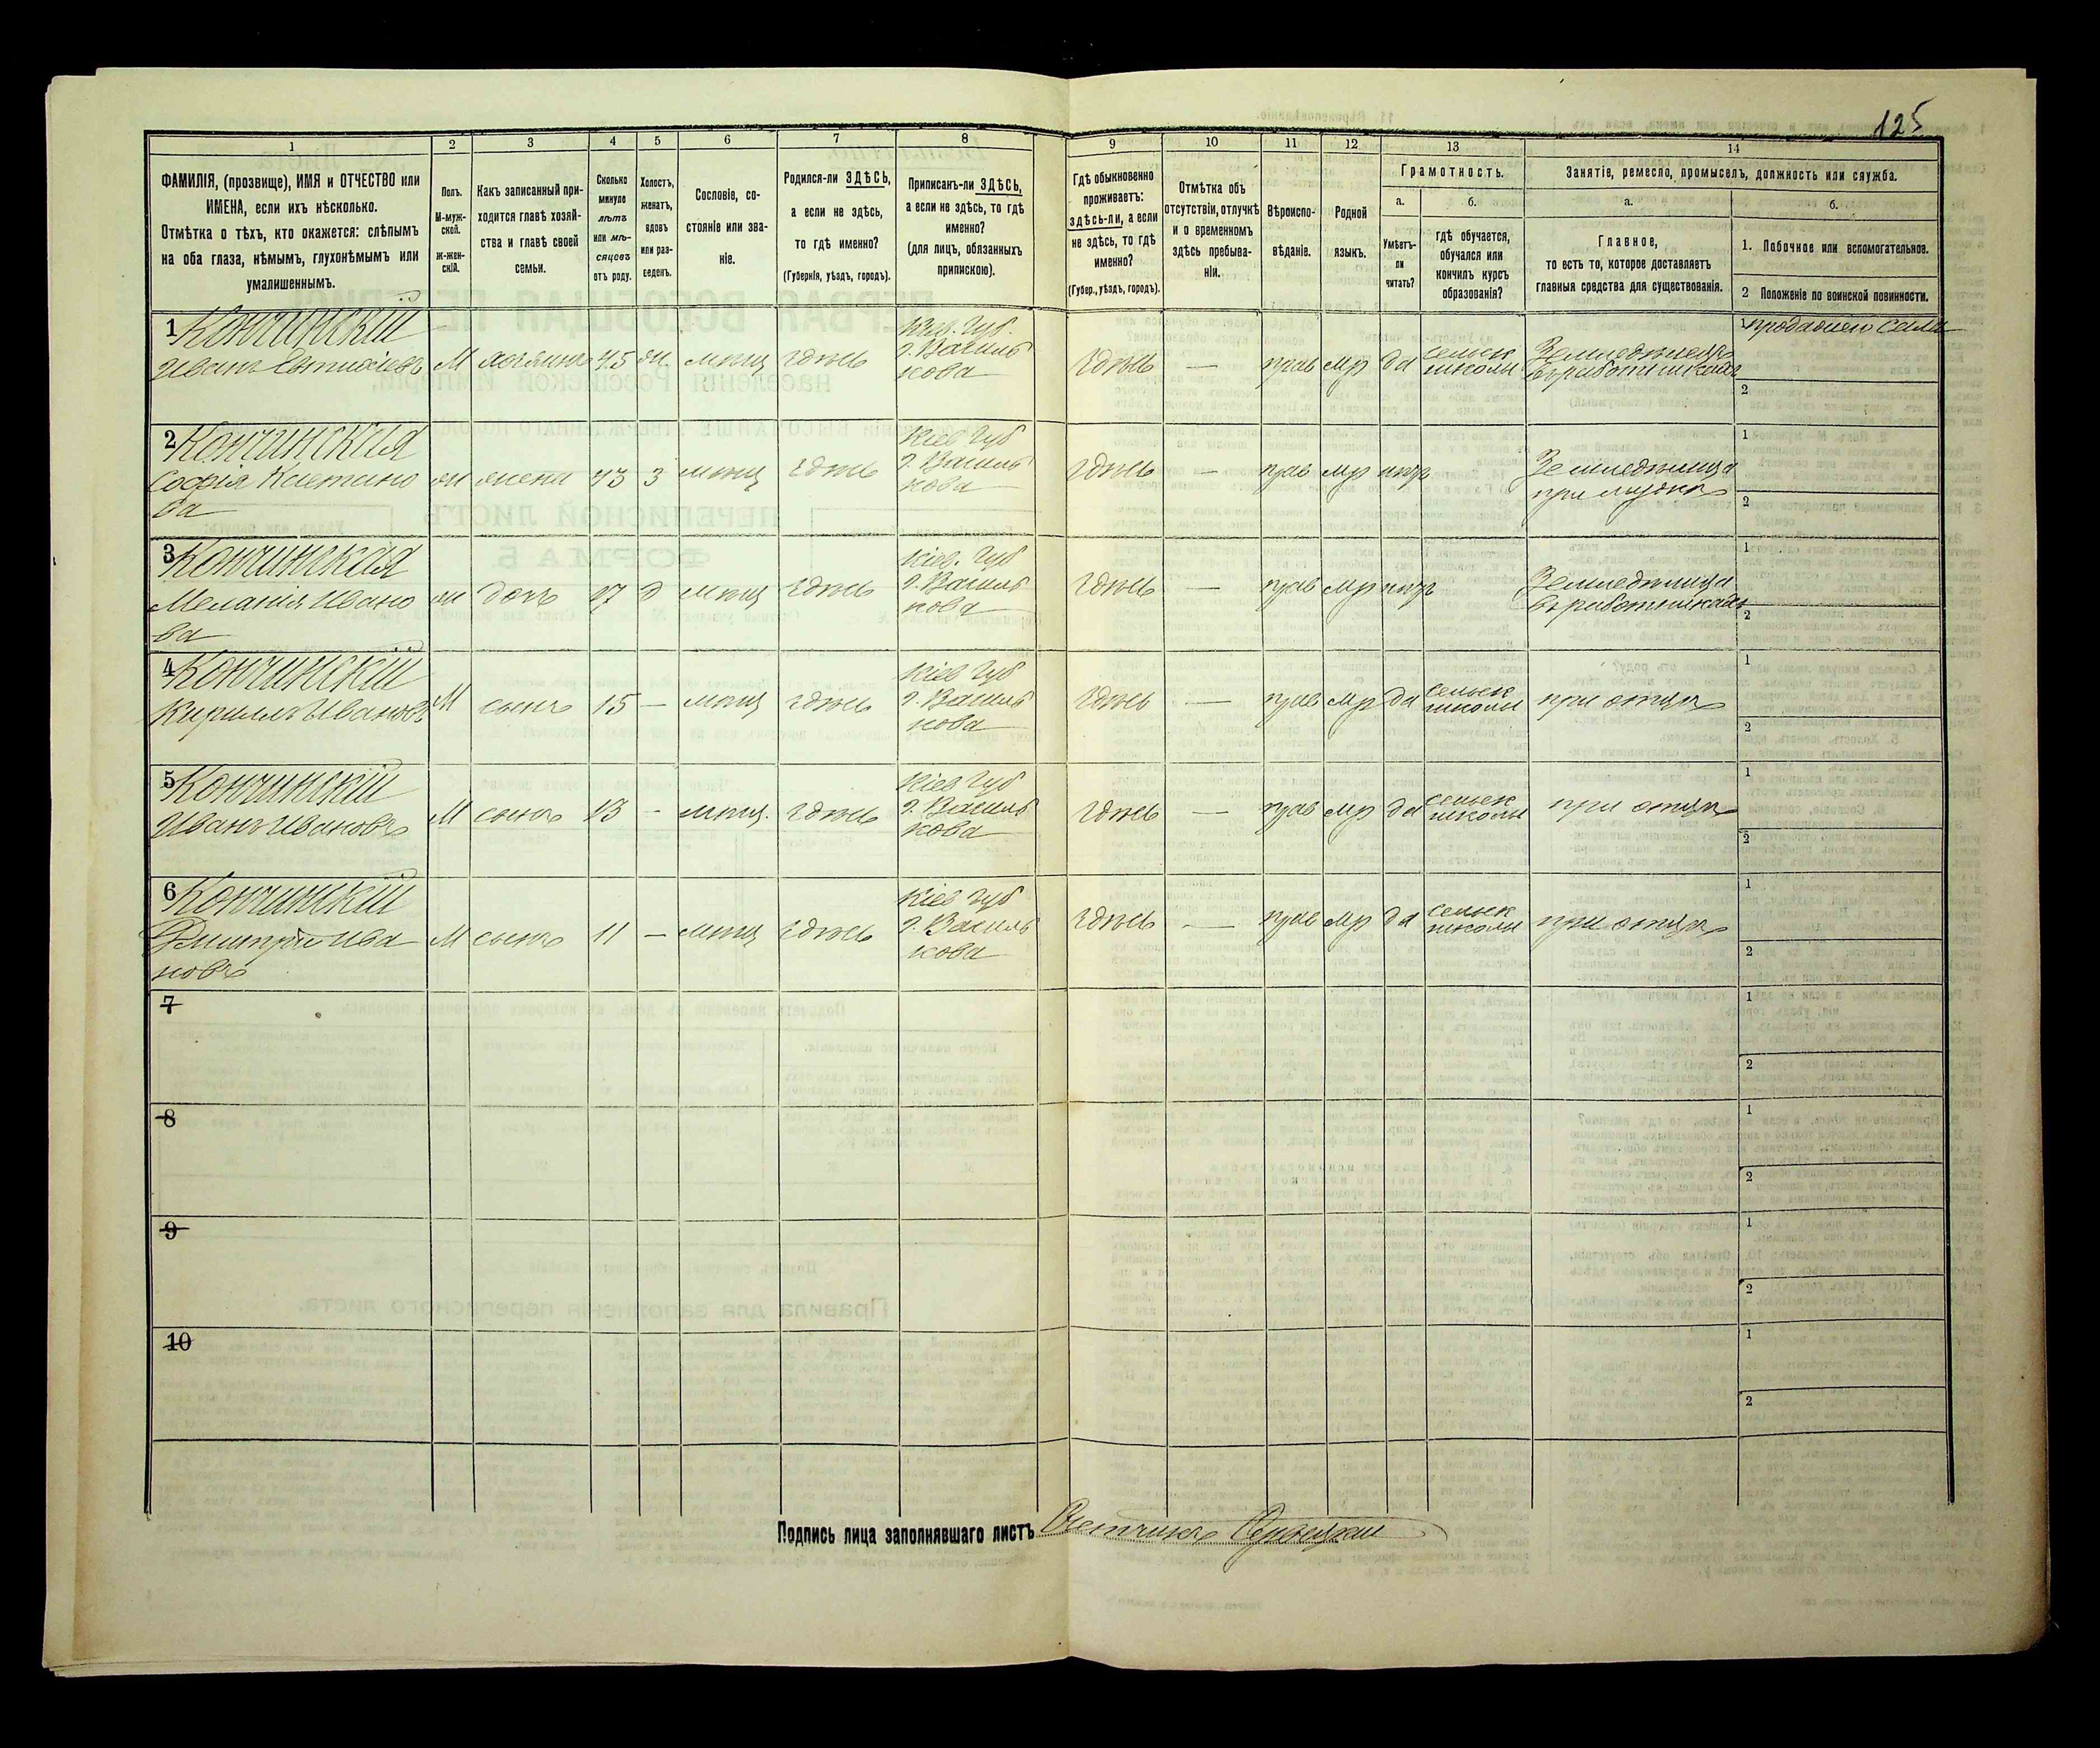 125
1 2 3 4 5 6 7 8 9 10 11 12 13 14
ФАМИЛІЯ, (прозвище), ИМЯ и ОТЧЕСТВО или
ИМЕНА, если ихъ нѣсколько.
Отмѣтка о тѣхъ, кто окажется: слѣпымъ
на оба глаза, нѣмымъ, глухонѣмымъ или
умалишеннымъ.
Полъ.
М-муж-
ской.
ж-жен-
скій.
Какъ записанный при-
ходится главѣ хозяй-
ства и главѣ своей
семьи.
Сколько
минуло
лѣтъ
или мѣ-
сяцевъ
отъ роду.
Холостъ,
женатъ,
вдовъ
или раз-
веденъ.
Сословіе, со-
стояніе или зва-
ніе.
Родился-ли ЗДѢСЬ,
а если не здѣсь,
то гдѣ именно?
(Губернія, уѣздъ, городъ).
Приписанъ-ли ЗДѢСЬ,
а если не здѣсь, то гдѣ
именно?
(для лицъ, обязанныхъ
припискою).
Гдѣ обыкновенно
проживаетъ:
здѣсь-ли, а если
не здѣсь, то гдѣ
именно?
(Губер., уѣздъ, городъ).
Отмѣтка объ
отсутствіи, отлучкѣ
и о временномъ
здѣсь пребыва-
ніи.
Вѣроиспо-
вѣданіе.
Родной
языкъ.
Грамотность.
а.
Умѣетъ-
ли
читать?
б.
гдѣ обучается,
обучался или
кончилъ курсъ
образованія?
Занятіе, ремесло, промыселъ, должность или служба.
а.
Главное,
то есть то, которое доставляетъ
главныя средства для существованія.
б.
1. Побочное или вспомогательное.
2 Положеніе по воинской повинности.
1 Кончинскій
Иванъ М хозяинъ 45 мѣщ здѣсь
Кіев. Губ.
г. Василь
кова
здѣсь — прав мр да сельск
школы
Земледѣлецъ
въ работникахъ
1
2
2 Кончинская
Софія Каетано
ва
ж жена 43 З мѣщ здѣсь
Кіев Губ
г. Василь
кова
здѣсь — прав мр нѣтъ
Земледѣлица
при мужѣ
1
2
3 Кончинская
Меланія Ивано
ва
ж дочь 17 Д мѣщ здѣсь
Кіев. Губ
г. Василь
кова
здѣсь — прав мр нѣтъ
Земледѣлица
въ работникахъ
1
2
4 Кончинскій
Кириллъ Ивановъ М сынъ 15 — мѣщ здѣсь
Кіев Губ
г. Василь
кова
здѣсь — прав мр да сельск
школы
при отцѣ
1
2
5 Кончинскій
Иванъ Ивановъ М сынъ 13 - мѣщ. здѣсь
Кіев Губ
г. Василь
кова
здѣсь — прав мр да сельск
школы
при отцѣ
1
2
6 Кончинскій
Дмитрій Ива
новъ
М сынъ 11 — мѣщ здѣсь
Кіев Губ
г. Василь
кова
здѣсь — прав мр да сельск
школы
при отцѣ
1
2
7
1
2
8
1
2
9
1
2
10
1
2
Подпись лица заполнявшаго листъ Счетчикъ